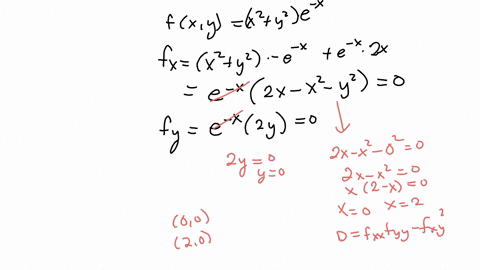 f(x,y) = (x²+y²)e^-x
fx = (x²+y²)·-e^-x + e^-x·2x
= e^-x(2x-x²-y²) = 0
fy = e^-x(2y) = 0
2y = 0
y = 0
2x-x²-0² = 0
2x-x² = 0
x(2-x) = 0
x = 0 x = 2
D = fxxfyy - fxy²
(0,0)
(2,0)